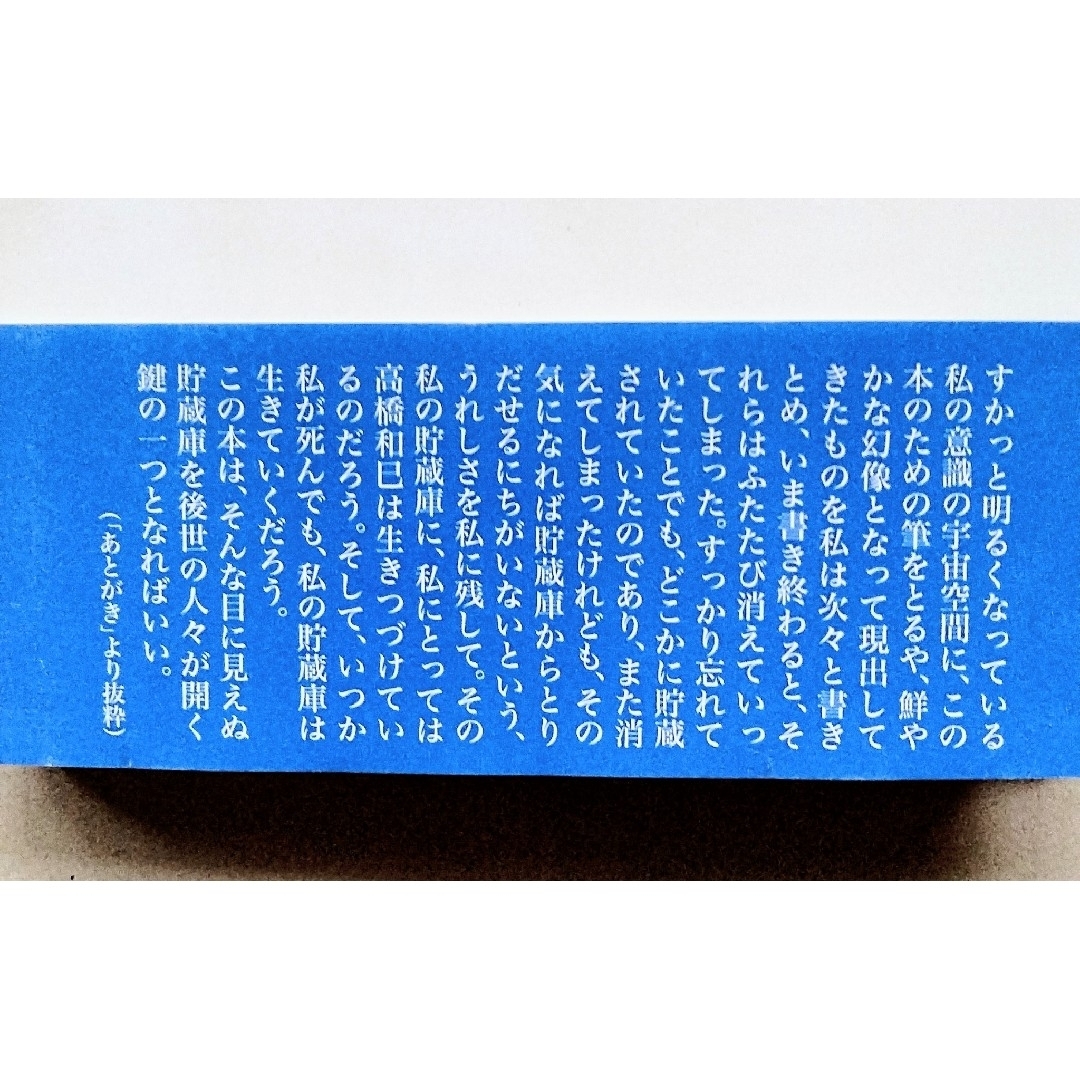 すかっと明るくなっている
私の意識の宇宙空間に、この
本のための筆をとるや、鮮や
かな幻像となって現出して
きたものを私は次々と書き
とめ、いま書き終わると、そ
れらはふたたび消えていっ
てしまった。すっかり忘れて
いたことでも、どこかに貯蔵
されていたのであり、また消
えてしまったけれども、その
気になれば貯蔵庫からとり
だせるにちがいないという、
うれしさを私に残して。その
私の貯蔵庫に、私にとっては
高橋和巳は生きつづけてい
るのだろう。そして、いつか
私が死んでも、私の貯蔵庫は
生きていくだろう。
この本は、そんな目に見えぬ
貯蔵庫を後世の人々が開く
鍵の一つとなればいい。
（「あとがき」より抜粋）